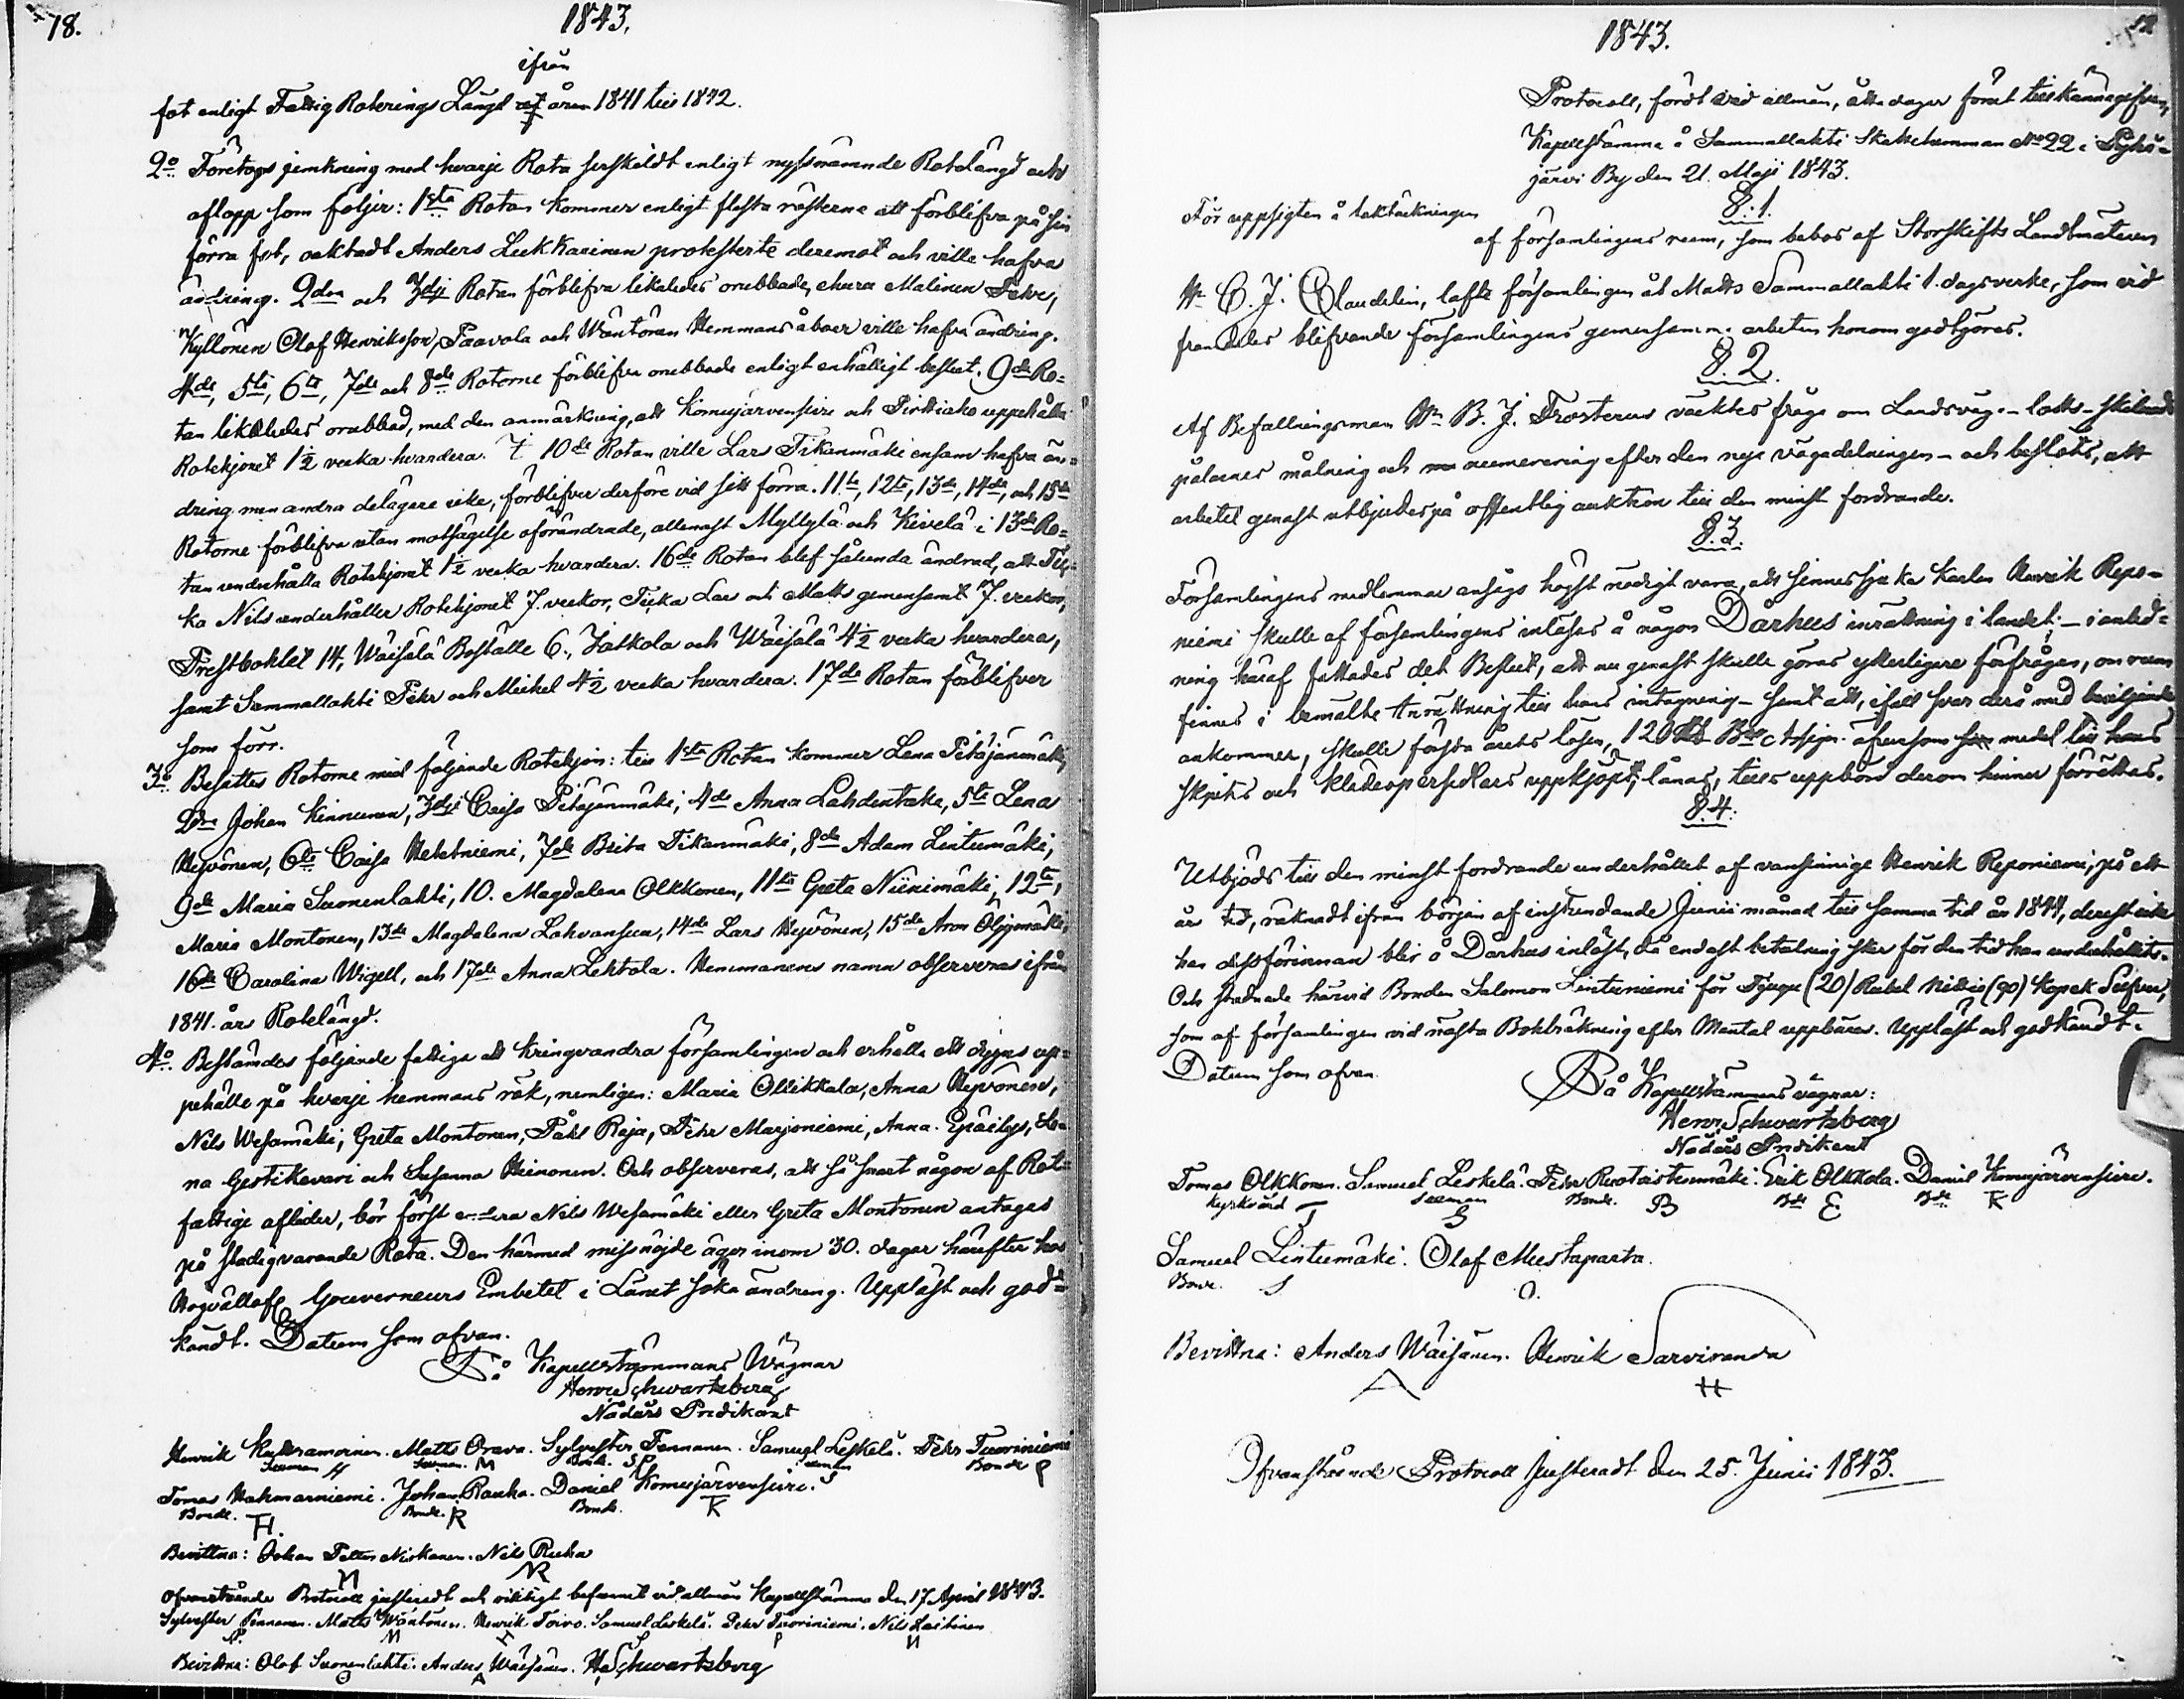 78.
1843.
ifrån
fot enligt Fattig Roterings Längd af åren 1841 till 1842.
2o Företogs jemkning med hvarje Rota serskildt enligt nyssnämnde Rotelängd och
aflopp som följer: 1sta Rotan kommer enligt flesta rösterna att förblifva på sin
förra fot, oaktadt Anders Leskkarinen protesterte deremot och ville hafva
ändring. 2dra och 3dje Rotan förblifva likaledes orubbade, ehuru Malinen Pehr,
Kyllönen Olof Henriksson, Paavola och Wäntönen Hemmans åboer ville hafva ändring.
4de, 5te, 6te, 7de och 8de Rotorne förblifva orubbade enligt enhälligt beslut. 9de Ro=
tan likaledes orubbad, med den anmärkning, att Komujärvensivu och Pirttiaho uppehålla
Rotehjonet 1½ vecka hvardera. I 10de Rotan ville Lars Tikanmäki ensam hafva än=
dring men andra delägare icke, förblifver derföre vid sitt förra. 11te, 12te, 13de, 14de, och 15de
Rotorne förblifva utan motsägelse oförändrade, allenast Myllylä och Kivelä i 13de Ro=
tan underhålla Rotehjonet 1½ vecka hvardera. 16de Rotan blef sålunda ändrad, att Tiik=
ka Nils underhåller Rotehjonet 7. veckor, Tiikka Lars och Matts gemensamt 7. veckor,
Prestbohlet 14, Wäisälä Boställe 6., Jatkola och Wäisälä 4½ vecka hvardera,
samt Sammallahti Pehr och Michel 4½ vecka hvardera. 17de Rotan förblifver
som förr.
3o Besattes Rotorne med följande Rotehjon: till 1sta Rotan kommer Lena Pitäjänmäki,
2dra Johan Kinnunen, 3dje Caisa Pitäjänmäki, 4de Anna Lahdentaka, 5te Lena
Hyvönen, 6te Caisa Hietaniemi, 7de Brita Tikanmäki, 8de Adam Lintumäki,
9de Maria Suonenlahti, 10. Magdalena Olkkonen, 11te Greta Niinimäki, 12te,
Maria Montonen, 13de Magdalena Lahvansuu, 14de Lars Hyvönen, 15de Aron Öljymäki,
16de Carolina Wigell, och 17de Anna Lehtola. Hemmanens namn observeras ifrån
1841. års Rotelängd.
4o. Bestämdes följande fattiga att kringvandra församlingen och erhålla ett dygns up=
pehälle på hvarje hemmans rök, nemligen: Maria Ollikkala, Anna Hyvönen,
Nils Wesamäki, Greta Montonen, Påhl Raja, Pehr Marjoniemi, Anna Epäilys, Le=
na Gestikevari och Susanna Heinonen. Och observeras, att så snart någon af Rot=
fattige aflider, bör först endera Nils Wesamäki eller Greta Montonen antagas
på stadigvarande Rota. Den härmed missnöjde äger inom 30. dagar härefter hos
Högvällofl. Gouverneurs Embetet i Länet söka ändring. Uppläst och god=
kändt. Datum som ofvan.
På Kapellstämmans Wägnar
Henr. Schwartzberg
Nådårs Predikant
Henrik Matts Orava. Sylvester Pennanen. Samuel Leskelä. Pehr Tuoriniemi
Seeman H Seeman. M Bonde. SP Seeman Bonde P
Tomas Hahmarniemi. Johan Rauha. Daniel Komujärvensivu. S
Bonde. TH. Bonde. R Bonde. K
Bevittna: Johan Petter Niskanen. Nils Ruha
N NR
Ofvanstående Protocoll justeradt och riktigt befunnit vid allmän Kapellstämma den 17 April 1843.
Sylvester Pennanen. Matts Wäntönen. Henrik Toivo. Samuel Leskelä. Pehr Tuoriniemi. Nils Laitinen
SP. M H S P N
Bevittna: Olof Suonenlahti. Anders Wäisänen. H. Schwartzberg
O A
1843.
Protocoll, fördt vid allmän, åtta dagar förut tillkännagifven,
Kapellstämma å Sammallahti Skattehemman No 22 i Pyhä=
järvi By den 21. Maji 1843.
§. 1.
För uppsigten å taktäckningen
af församlingens rum, som bebos af Storskifts Landtmätaren
Hr C. J. Claudelin, lofte församlingen åt Matts Sammallahti 1. dagsverke, som vid
framdeles blifvande församlingens gemensamma arbeten honom godtgöres.
§. 2.
Af Befallningsman Hr B. J. Frosterus väcktes fråga om Landsvägs-lotts-skilnads
pålarnes målning och numerering efter den nya vägadelningen - och beslöts, att
arbetet genast utbjudes på offentlig auktion till den minst fordrande.
§. 3.
Församlingens medlemmar ansågs högst nödigt vara, att sinnessjuka karlen Henrik Repo=
niemi skulle af församlingens intagas å någon Dårhus inrättning i landet; - i anled=
ning häraf fattades det Beslut, att nu genast skulle göras ytterligare förfrågan, om rum
finnes i bemälte Inrättning till hans intagning - samt att, ifall svar derå med beviljande
ankommer, skulle första årets lösen, 120 Bco Assign. äfvensom medel till hans
skjuts och klädespersedlars uppköpt, lånas, tills uppbörd derom hinner förrättas.
§. 4.
Utbjöds till den minst fordrande underhållet af vansinnige Henrik Reponiemi, på ett
år tid, räknadt ifrån början af instundande Junii månad till samma tid år 1844, derest icke
han dessförinnan blir å Dårhus inlöst, då endast betalning sker för den tid han underhållits.
Och stadnade härvid Bonden Salomon Lintuniemi för Tjugu (20) Rubel Nittio (90) Kopek Silfver,
som af församlingen vid nästa Bohlräkning efter Mantal uppbäres. Uppläst och godkändt.
Datum som ofvan.
På Kapellstämmans vägnar:
Henr. Schwartzberg
Nådårs Predikant
Tomas Olkkonen. Samuel Leskelä. Pehr Ruotoistenmäki. Erik Olkkola. Daniel Komujärvensivu.
Kyrkvärd T Seeman S Bonde. B Bde E Bde. K
Samuel Lintumäki. Olof Mustaparta.
Bonde. S O.
Bevittna: Anders Wäisänen. Henrik Sarviranda
A H
Ofvanstående Protocoll justeradt den 25. Junii 1843.